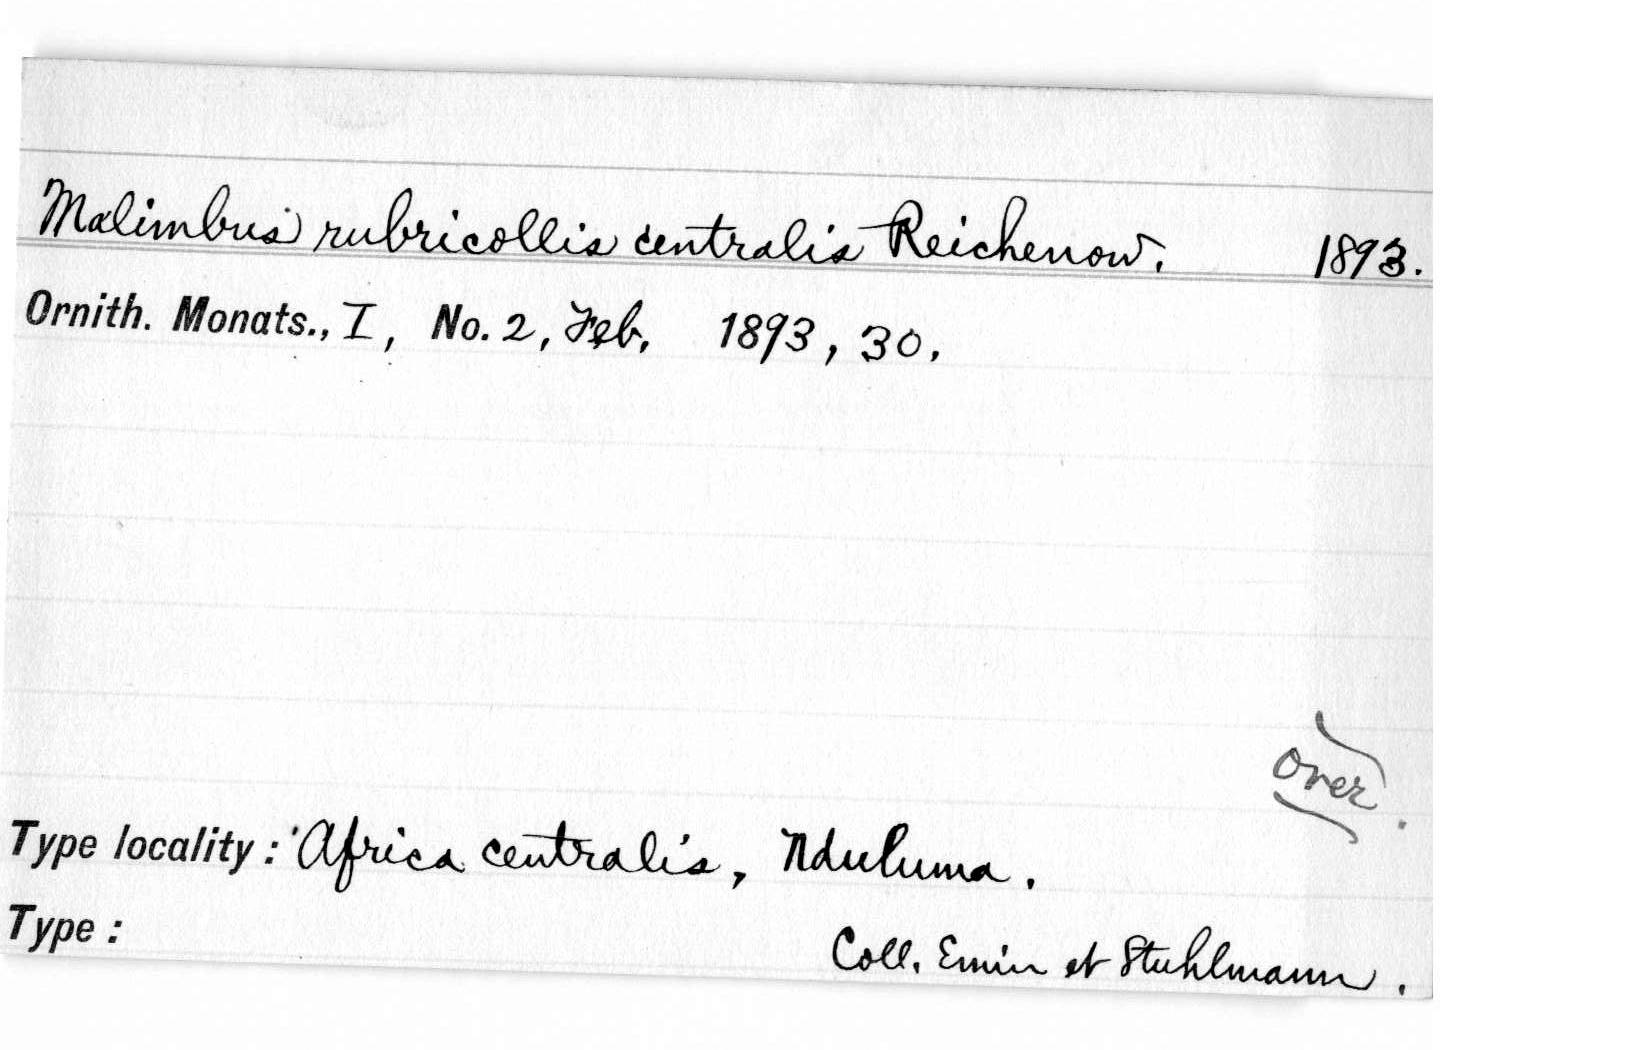 Malimbus rubricollis centralis Reichenow. 1893.
Ornith. Monats., I, No. 2, Feb, 1893, 30,
over
Type locality: Africa centralis, Nduluma.
Type:
Coll. Emin et Stuhlmann.